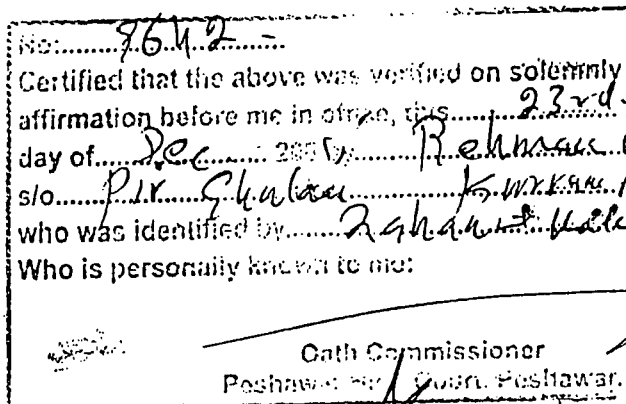 No:........9642-
Certified that the above was verified on solemnly
affirmation before me in office, this........23rd
day of.....Dec..... 200 by........Rehman
s/o.....Pir Ghulam
who was identified by........
Who is personally known to me:
Oath Commissioner
Peshawar High Court, Peshawar.